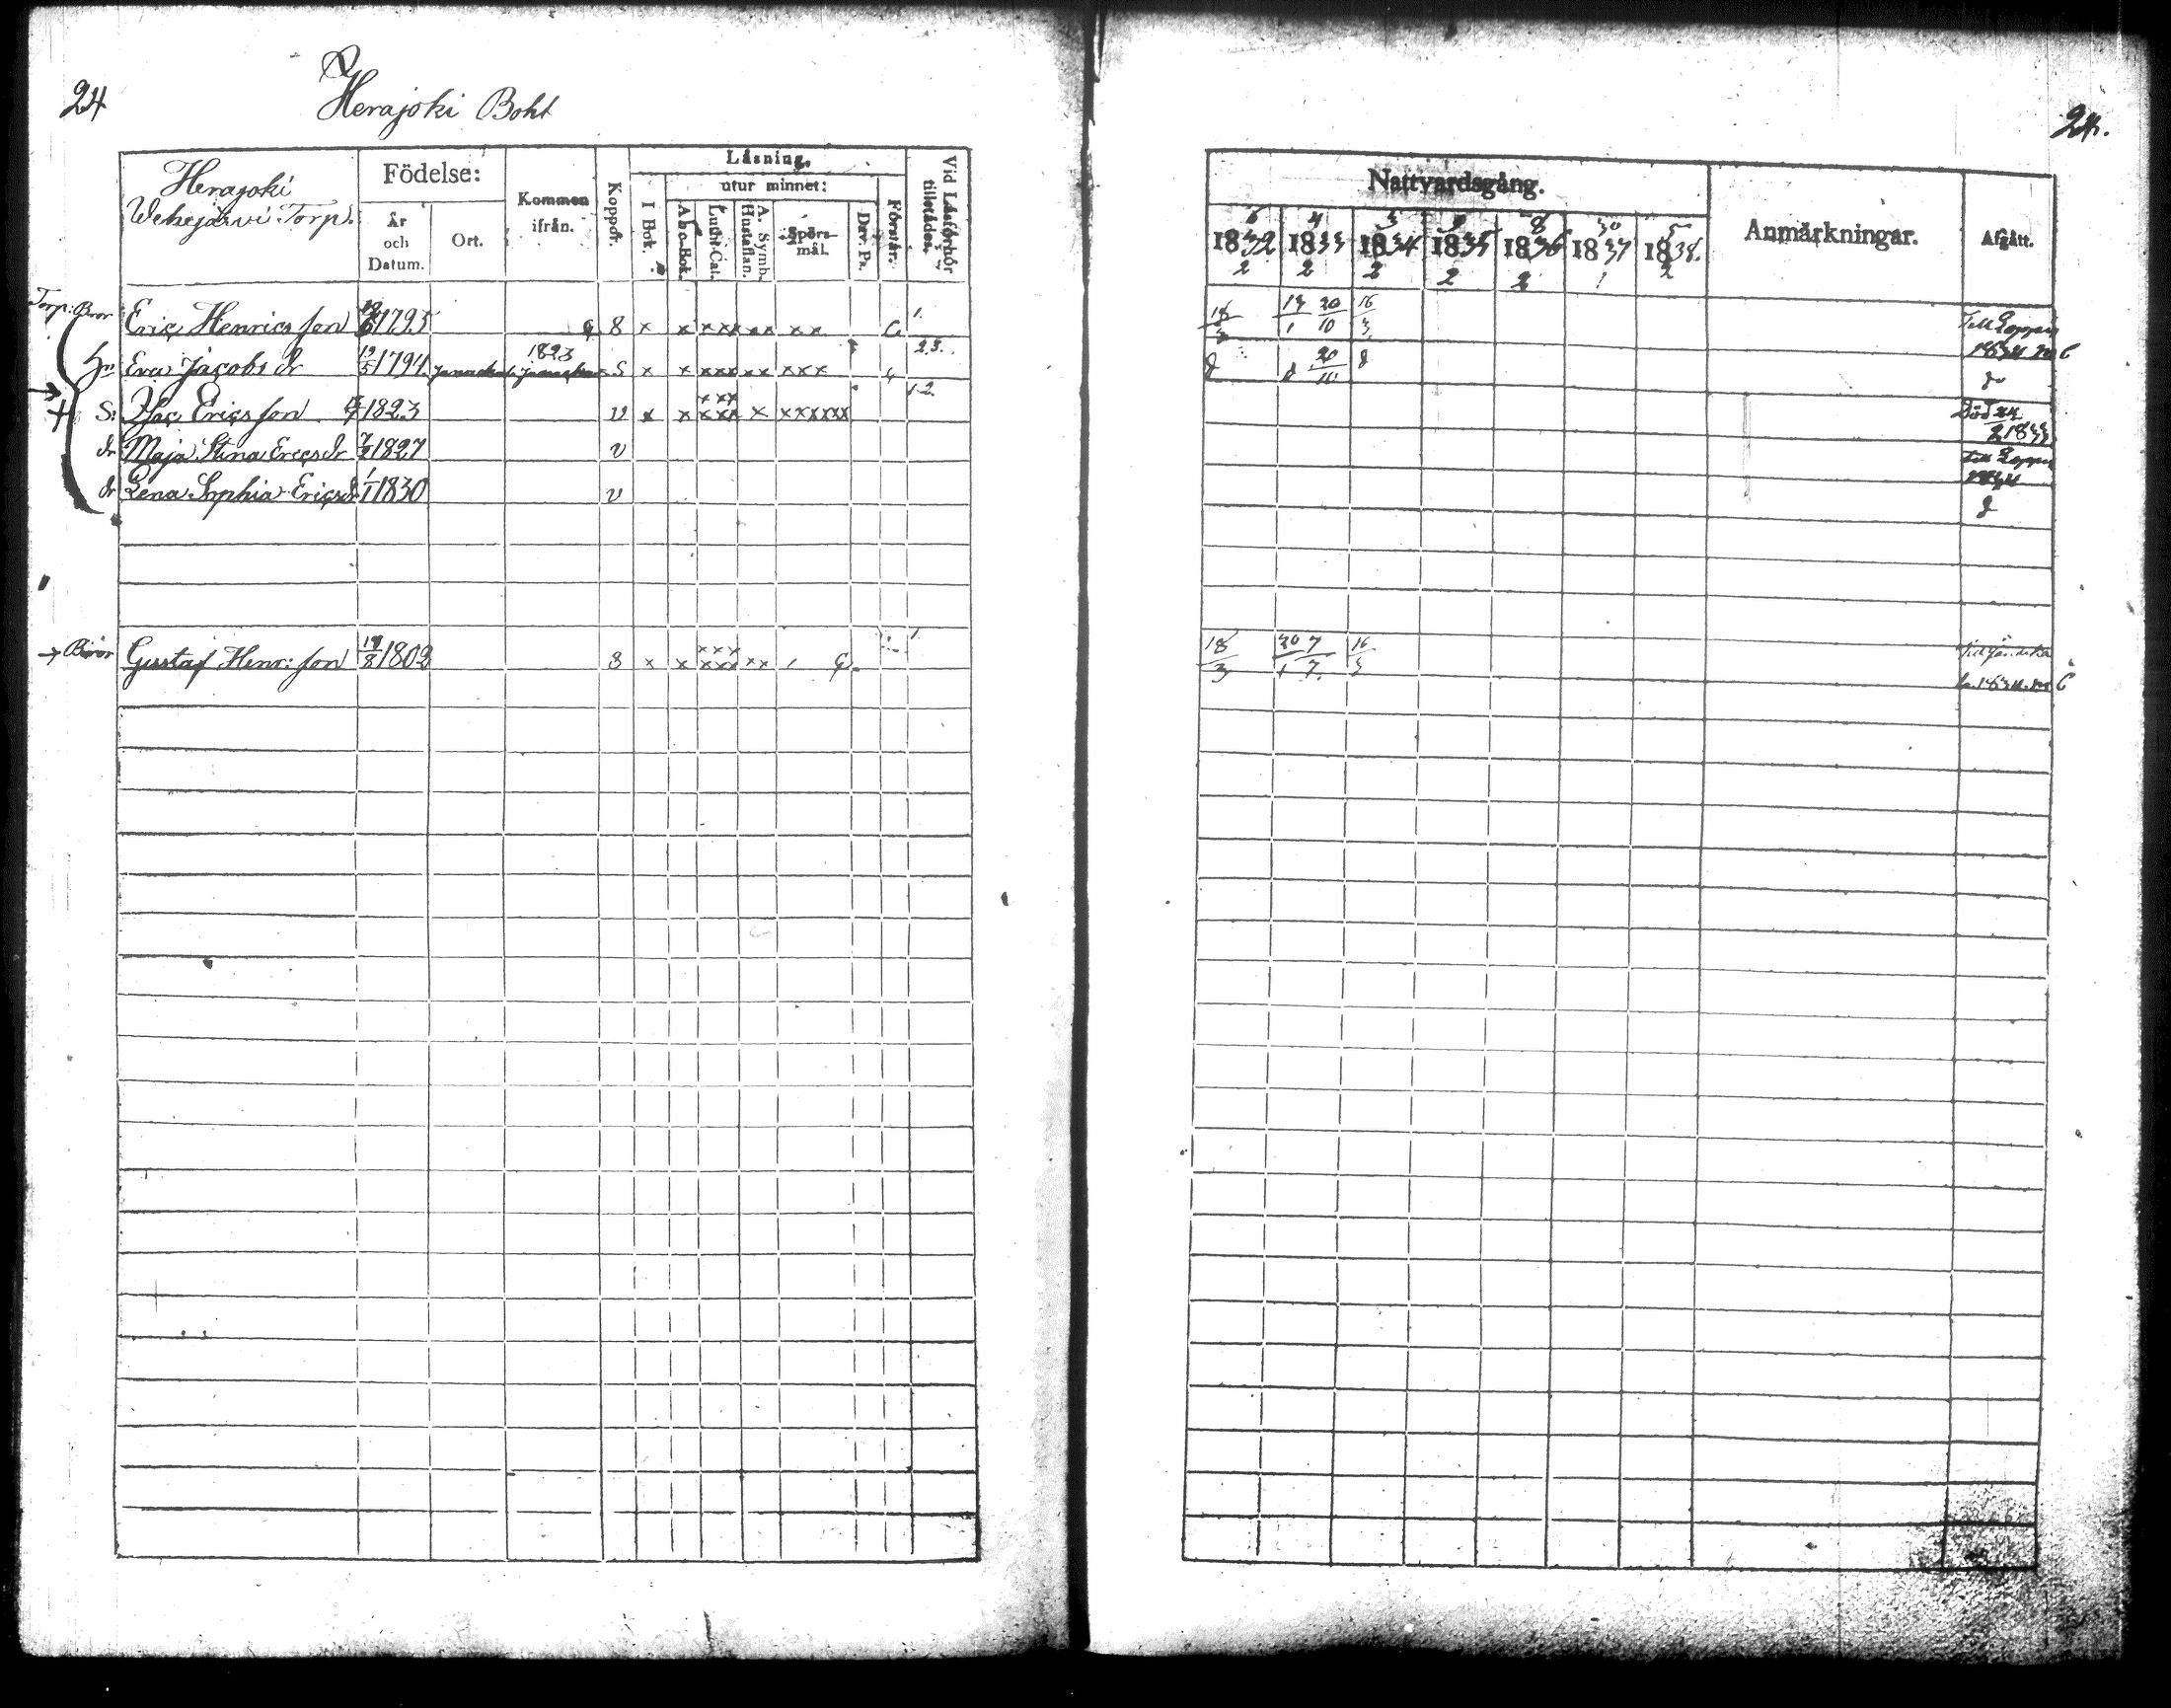 24
Herajoki Boht
24.
Herajoki
Wehejärvi Torp.
Födelse:
År
och
Datum.
Ort.
Kommen
ifrån.
Koppor.
Läsning.
I Bok.
utur minnet:
Abc-Bok.
Luth. Cat.
A. Symb.
Hustaflan.
Spörs-
mål.
Dav. Ps.
Förstår.
Vid Läsförhör
tillstädes.
Torp: Bror Eric Henrics son 1793 8 x x x x x x x x x 1.
Hu Eva Jacobs dr 19/5 1794 1823 S x x x x x x x x x x 2.3.
S: Isac Erics son 1823 v x x x x x x x x x x x x x x x 1.2.
dr Maja Stina Erics dr 1827 v
dr Lena Sophia Erics dr 1/1 1830 v
Bror Gustaf Henr: son 19/8 1802 8 x x x x x x x x x x 1
Nattvardsgång.
6 4 3 9 8 30 5
1832 1833 1834 1835 1836 1837 1838.
2 2 2 2 2 1 2
Anmärkningar.
Afgått.
18/3 20/10 16/3 Till Loppis
1834
20/10
Död 24
2 1833
Till Loppis
1834
18/3 20/1 7/7 16/3
1834